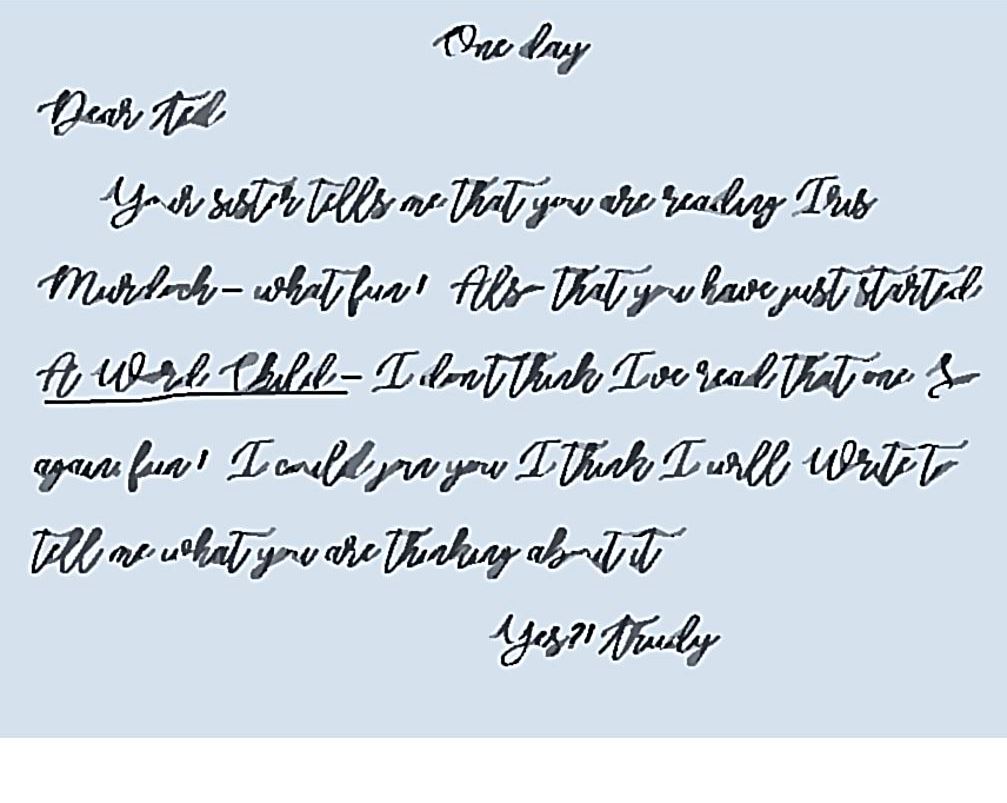 One day
Dear Ted
Your sister tells me that you are reading Iris
Murdoch – what fun! Also that you have just started
A Word Child – I don't think I've read that one So
again fun! I could join you I think I will Write to
tell me what you are thinking about it
Yes?! Trudy